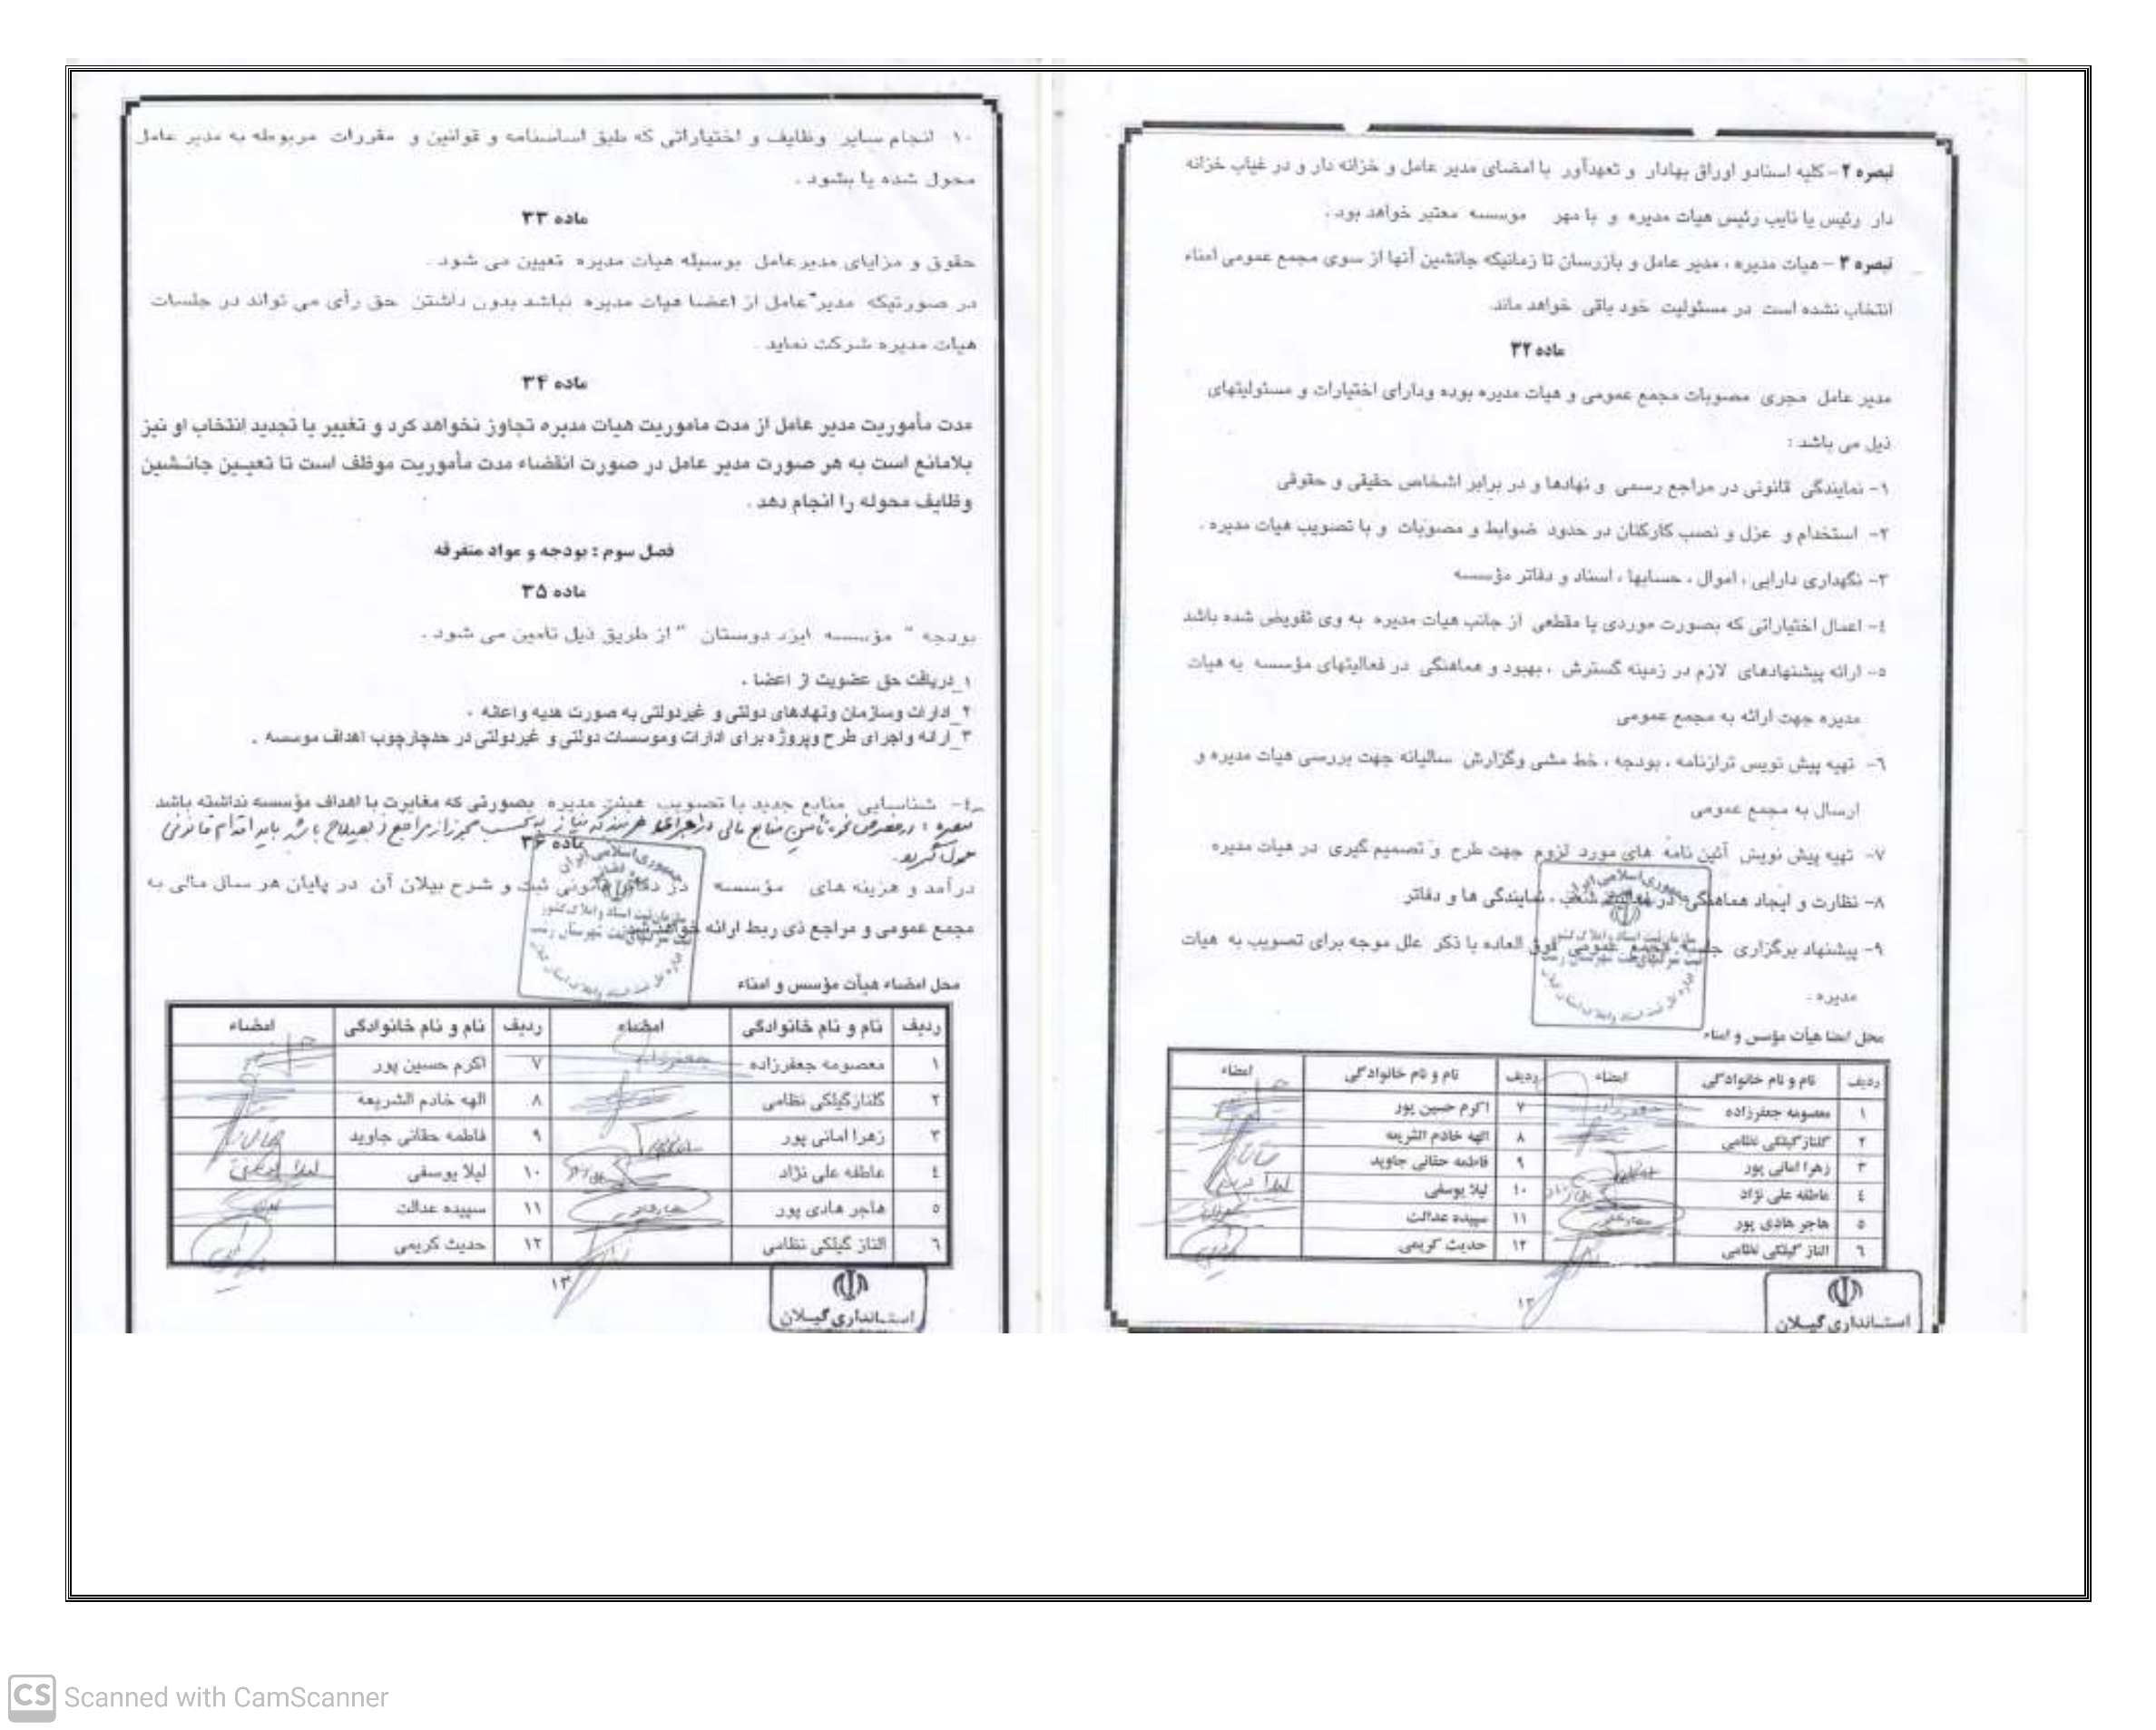 تبصره ۲ – کلیه اسنادو اوراق بهادار و تعهدآور با امضای مدیر عامل و خزانه دار و در غیاب خزانه
دار رئیس یا نایب رئیس هیات مدیره و با مهر موسسه معتبر خواهد بود .
تبصره ۳ – هیات مدیره ، مدیر عامل و بازرسان تا زمانیکه جانشین آنها از سوی مجمع عمومی امناء
انتخاب نشده است در مسئولیت خود باقی خواهد ماند.
ماده ۳۲
مدیر عامل مجری مصوبات مجمع عمومی و هیات مدیره بوده ودارای اختیارات و مسئولیتهای
ذیل می باشد :
۱- نمایندگی قانونی در مراجع رسمی و نهادها و در برابر اشخاص حقیقی و حقوقی
۲- استخدام و عزل و نصب کارکنان در حدود ضوابط و مصوبات و با تصویب هیات مدیره .
۳- نگهداری دارایی ، اموال ، حسابها ، اسناد و دفاتر مؤسسه
٤- اعمال اختیاراتی که بصورت موردی یا مقطعی از جانب هیات مدیره به وی تفویض شده باشد
۵- ارائه پیشنهادهای لازم در زمینه گسترش ، بهبود و هماهنگی در فعالیتهای مؤسسه به هیات
مدیره جهت ارائه به مجمع عمومی
٦- تهیه پیش نویس ترازنامه ، بودجه ، خط مشی وگزارش سالیانه جهت بررسی هیات مدیره و
ارسال به مجمع عمومی
۷- تهیه پیش نویش آئین نامه های مورد لزوم جهت طرح و تصمیم گیری در هیات مدیره
۸- نظارت و ایجاد هماهنگی در فعالیت شعب ، نمایندگی ها و دفاتر
۹- پیشنهاد برگزاری جلسه مجمع عمومی فوق العاده با ذکر علل موجه برای تصویب به هیات
مدیره .
محل امضا هیأت مؤسس و امناء
ردیف نام و نام خانوادگی امضاء ردیف نام و نام خانوادگی امضاء
۱ معصومه جعفرزاده ۷ اکرم حسین پور
۲ گلنازگیلکی نظامی ۸ الهه خادم الشریعه
۳ زهرا امانی پور ۹ فاطمه حقانی جاوید
٤ عاطفه علی نژاد ۱۰ لیلا یوسفی
۵ هاجر هادی پور ۱۱ سپیده عدالت
٦ الناز گیلکی نظامی ۱۲ حدیث کریمی
استانداری گیلان
۱۰- انجام سایر وظایف و اختیاراتی که طبق اساسنامه و قوانین و مقررات مربوطه به مدیر عامل
محول شده یا بشود .
ماده ۳۳
حقوق و مزایای مدیرعامل بوسیله هیات مدیره تعیین می شود .
در صورتیکه مدیر عامل از اعضا هیات مدیره نباشد بدون داشتن حق رأی می تواند در جلسات
هیات مدیره شرکت نماید .
ماده ۳۴
مدت مأموریت مدیر عامل از مدت ماموریت هیات مدیره تجاوز نخواهد کرد و تغییر یا تجدید انتخاب او نیز
بلامانع است به هر صورت مدیر عامل در صورت انقضاء مدت مأموریت موظف است تا تعیین جانشین
وظایف محوله را انجام دهد .
فصل سوم : بودجه و مواد متفرقه
ماده ۳۵
بودجه " مؤسسه ایزد دوستان " از طریق ذیل تامین می شود .
۱_دریافت حق عضویت از اعضا .
۲_ ادارات وسازمان ونهادهای دولتی و غیردولتی به صورت هدیه واعانه .
۳_ارائه واجرای طرح وپروژه برای ادارات وموسسات دولتی و غیردولتی در حدچارچوب اهداف موسسه .
٤- شناسایی منابع جدید با تصویب هیئت مدیره بصورتی که مغایرت با اهداف مؤسسه نداشته باشد
تبصره : درخصوص نحوه تأمین منابع مالی و اجرای هر بند که نیاز به کسب مجوز از مراجع ذیصلاح باشد باید اقدام قانونی
ماده ۳۶
درآمد و هزینه های مؤسسه در دفاتر قانونی ثبت و شرح بیلان آن در پایان هر سال مالی به
مجمع عمومی و مراجع ذی ربط ارائه خواهد شد
محل امضاء هیأت مؤسس و امناء
ردیف نام و نام خانوادگی امضاء ردیف نام و نام خانوادگی امضاء
۱ معصومه جعفرزاده ۷ اکرم حسین پور
۲ گلنازگیلکی نظامی ۸ الهه خادم الشریعه
۳ زهرا امانی پور ۹ فاطمه حقانی جاوید
٤ عاطفه علی نژاد ۱۰ لیلا یوسفی
۵ هاجر هادی پور ۱۱ سپیده عدالت
٦ الناز گیلکی نظامی ۱۲ حدیث کریمی
۱۳
استانداری گیلان
CS Scanned with CamScanner